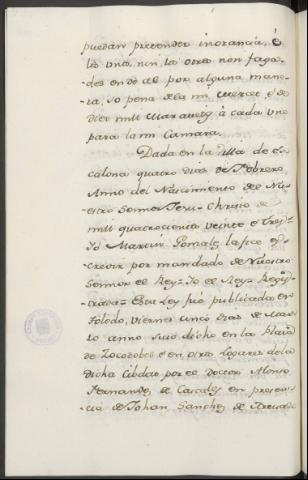 puedan pretender inorancia, é
los unos, nin los otros non faga-
-des ende al por alguna mane-
-ra, so pena de la mi merced, é de
diez mill maravedis à cada uno
para la mi Camara.
Dada en la Villa de es-
calona quatro dias de Febrero
Anno del Nascimiento de Nu-
estro Sennor Jesu-Christo de
mill quatrocientos veinte é trez
Yo Martin Gonzalez la fice es-
crevir por mandado de Nuestro
Sennor el Rey = Yo el Rey = Regis-
trada = Esta Ley fué publicada en
Toledo, viernes cinco dias de Mar-
zo anno suso dicho en la Plaza
de Zocodobe é en otros Logares de la
dicha Cibdat por el Doctor Alonso
Fernandez de Cascales en presen-
cia de Johan Sanchez de